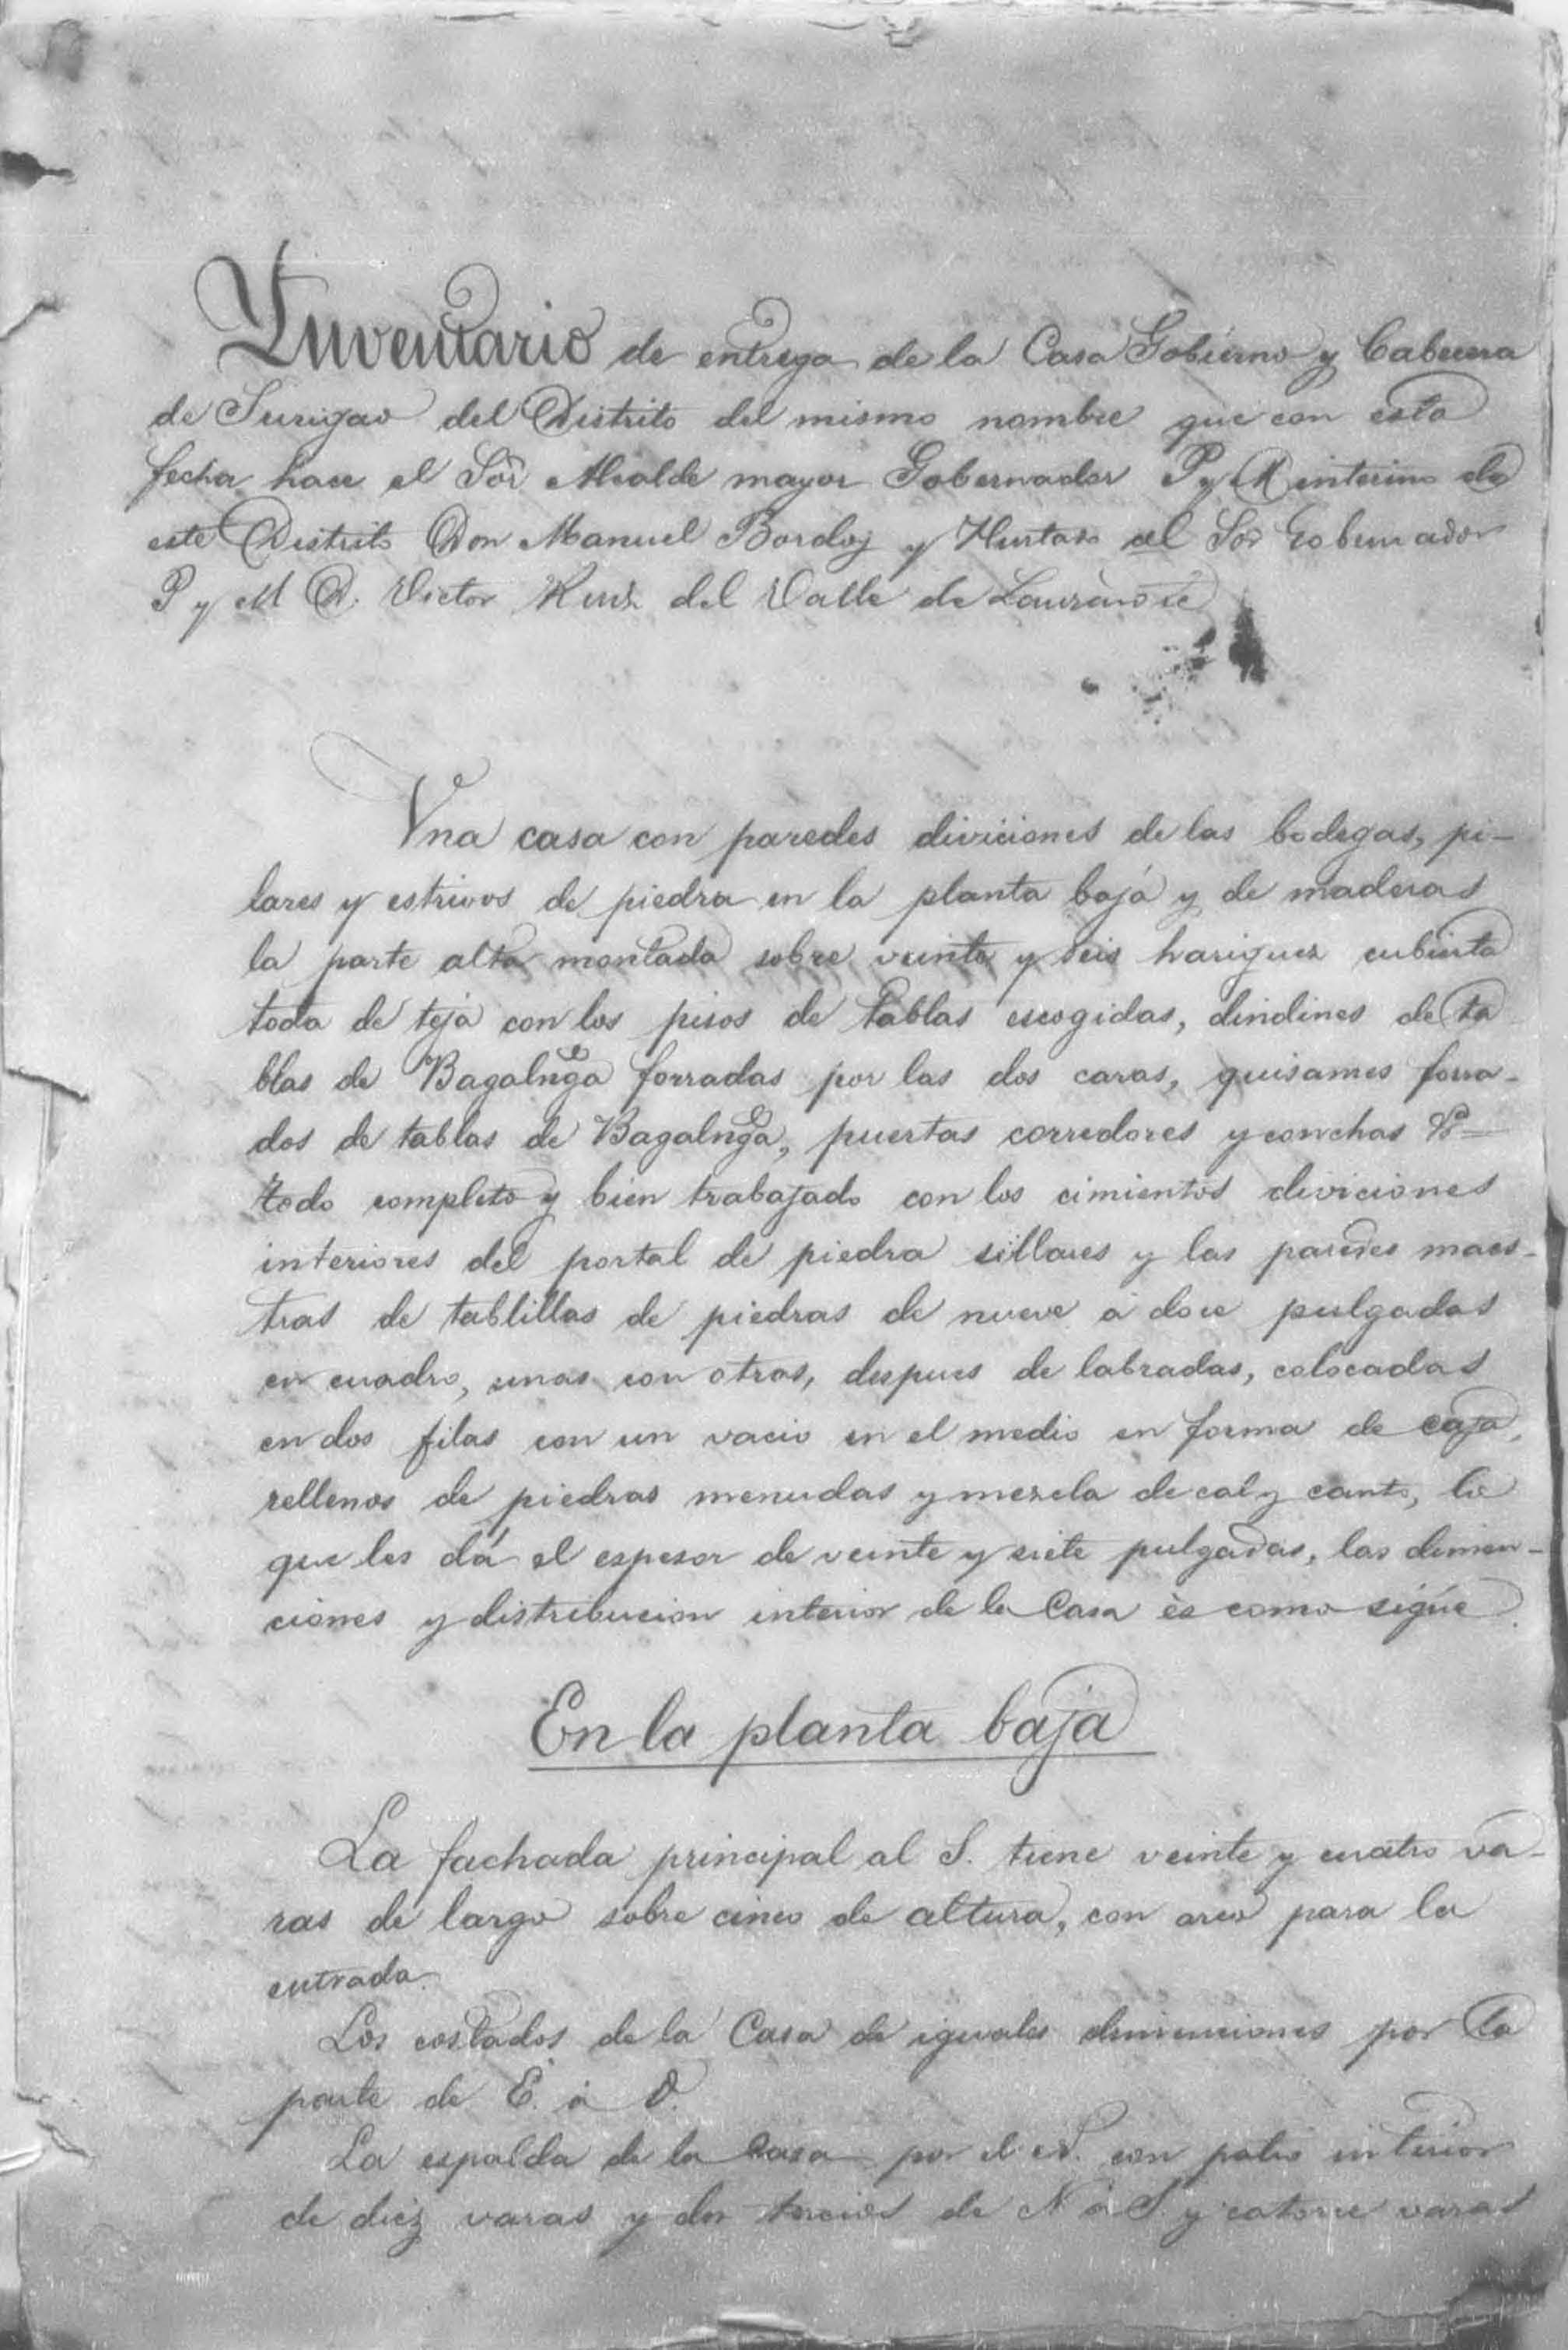 Ynventario de entrega de la Casa Gobierno y Cabecera
de Surigao del Distrito del mismo nombre que con esta
fecha hace el Sõr Alcalde mayor Gobernador P y M interino de
este Distrito Don Manuel Bordoy y Hurtado al Sor Gobernador
P y M D. Victor Ruiz del Valle de
Vna casa con paredes diviciones de las bodegas, pi-
lares y estrivos de piedra en la planta bajá y de maderas
la parte alta montada sobre veinte y seis hariguez cubierta
toda de teja con los pisos de tablas escogidas, dindines de ta
blas de Bagalnga forradas por las dos caras, quisames forra-
dos de tablas de Bagalnga, puertas corredores y conchas &=
todo completo y bien trabajado con los cimientos diviciones
interiores del portal de piedra sillares y las paredes maes-
tras de tablillas de piedras de nueve á doce pulgadas
en cuadro, unas con otras, despues de labradas, colocadas
en dos filas con un vacio en el medio en forma de caja,
rellenos de piedras menudas y mezcla de cal y canto, lo
que les dá el espesor de veinte y siete pulgadas, las dimen-
ciones y distribucion interior de la Casa és como sigúe
En la planta baja
La fachada principal al S. tiene veinte y cuatro va-
ras de largo sobre cinco de altura, con arco para la
entrada.
Los costados de la Casa de iguales dimenciones por la
parte de E. á O.
La espalda de la Casa por el N. con patio interior
de diez varas y dos tercios de N á S. y catorce varas